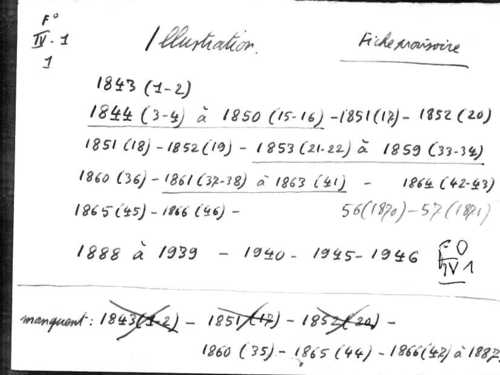 F° Illustration. Fiche provisoire
IV-1
1
1843 (1-2)
1844 (3-4) à 1850 (15-16) - 1851 (17) - 1852 (20)
1851 (18) - 1852 (19) - 1853 (21-22) à 1859 (33-34)
1860 (36) - 1861 (37-38) à 1863 (41) - 1864 (42-43)
1865 (45) - 1866 (46) - 56 (1870) - 57 (1871)
1888 à 1939 - 1940 - 1945 - 1946 FO
IV 1
manquent : 1843 (1-2) - 1851 (17) - 1852 (20) -
1860 (35) - 1865 (44) - 1866 (47) à 1887